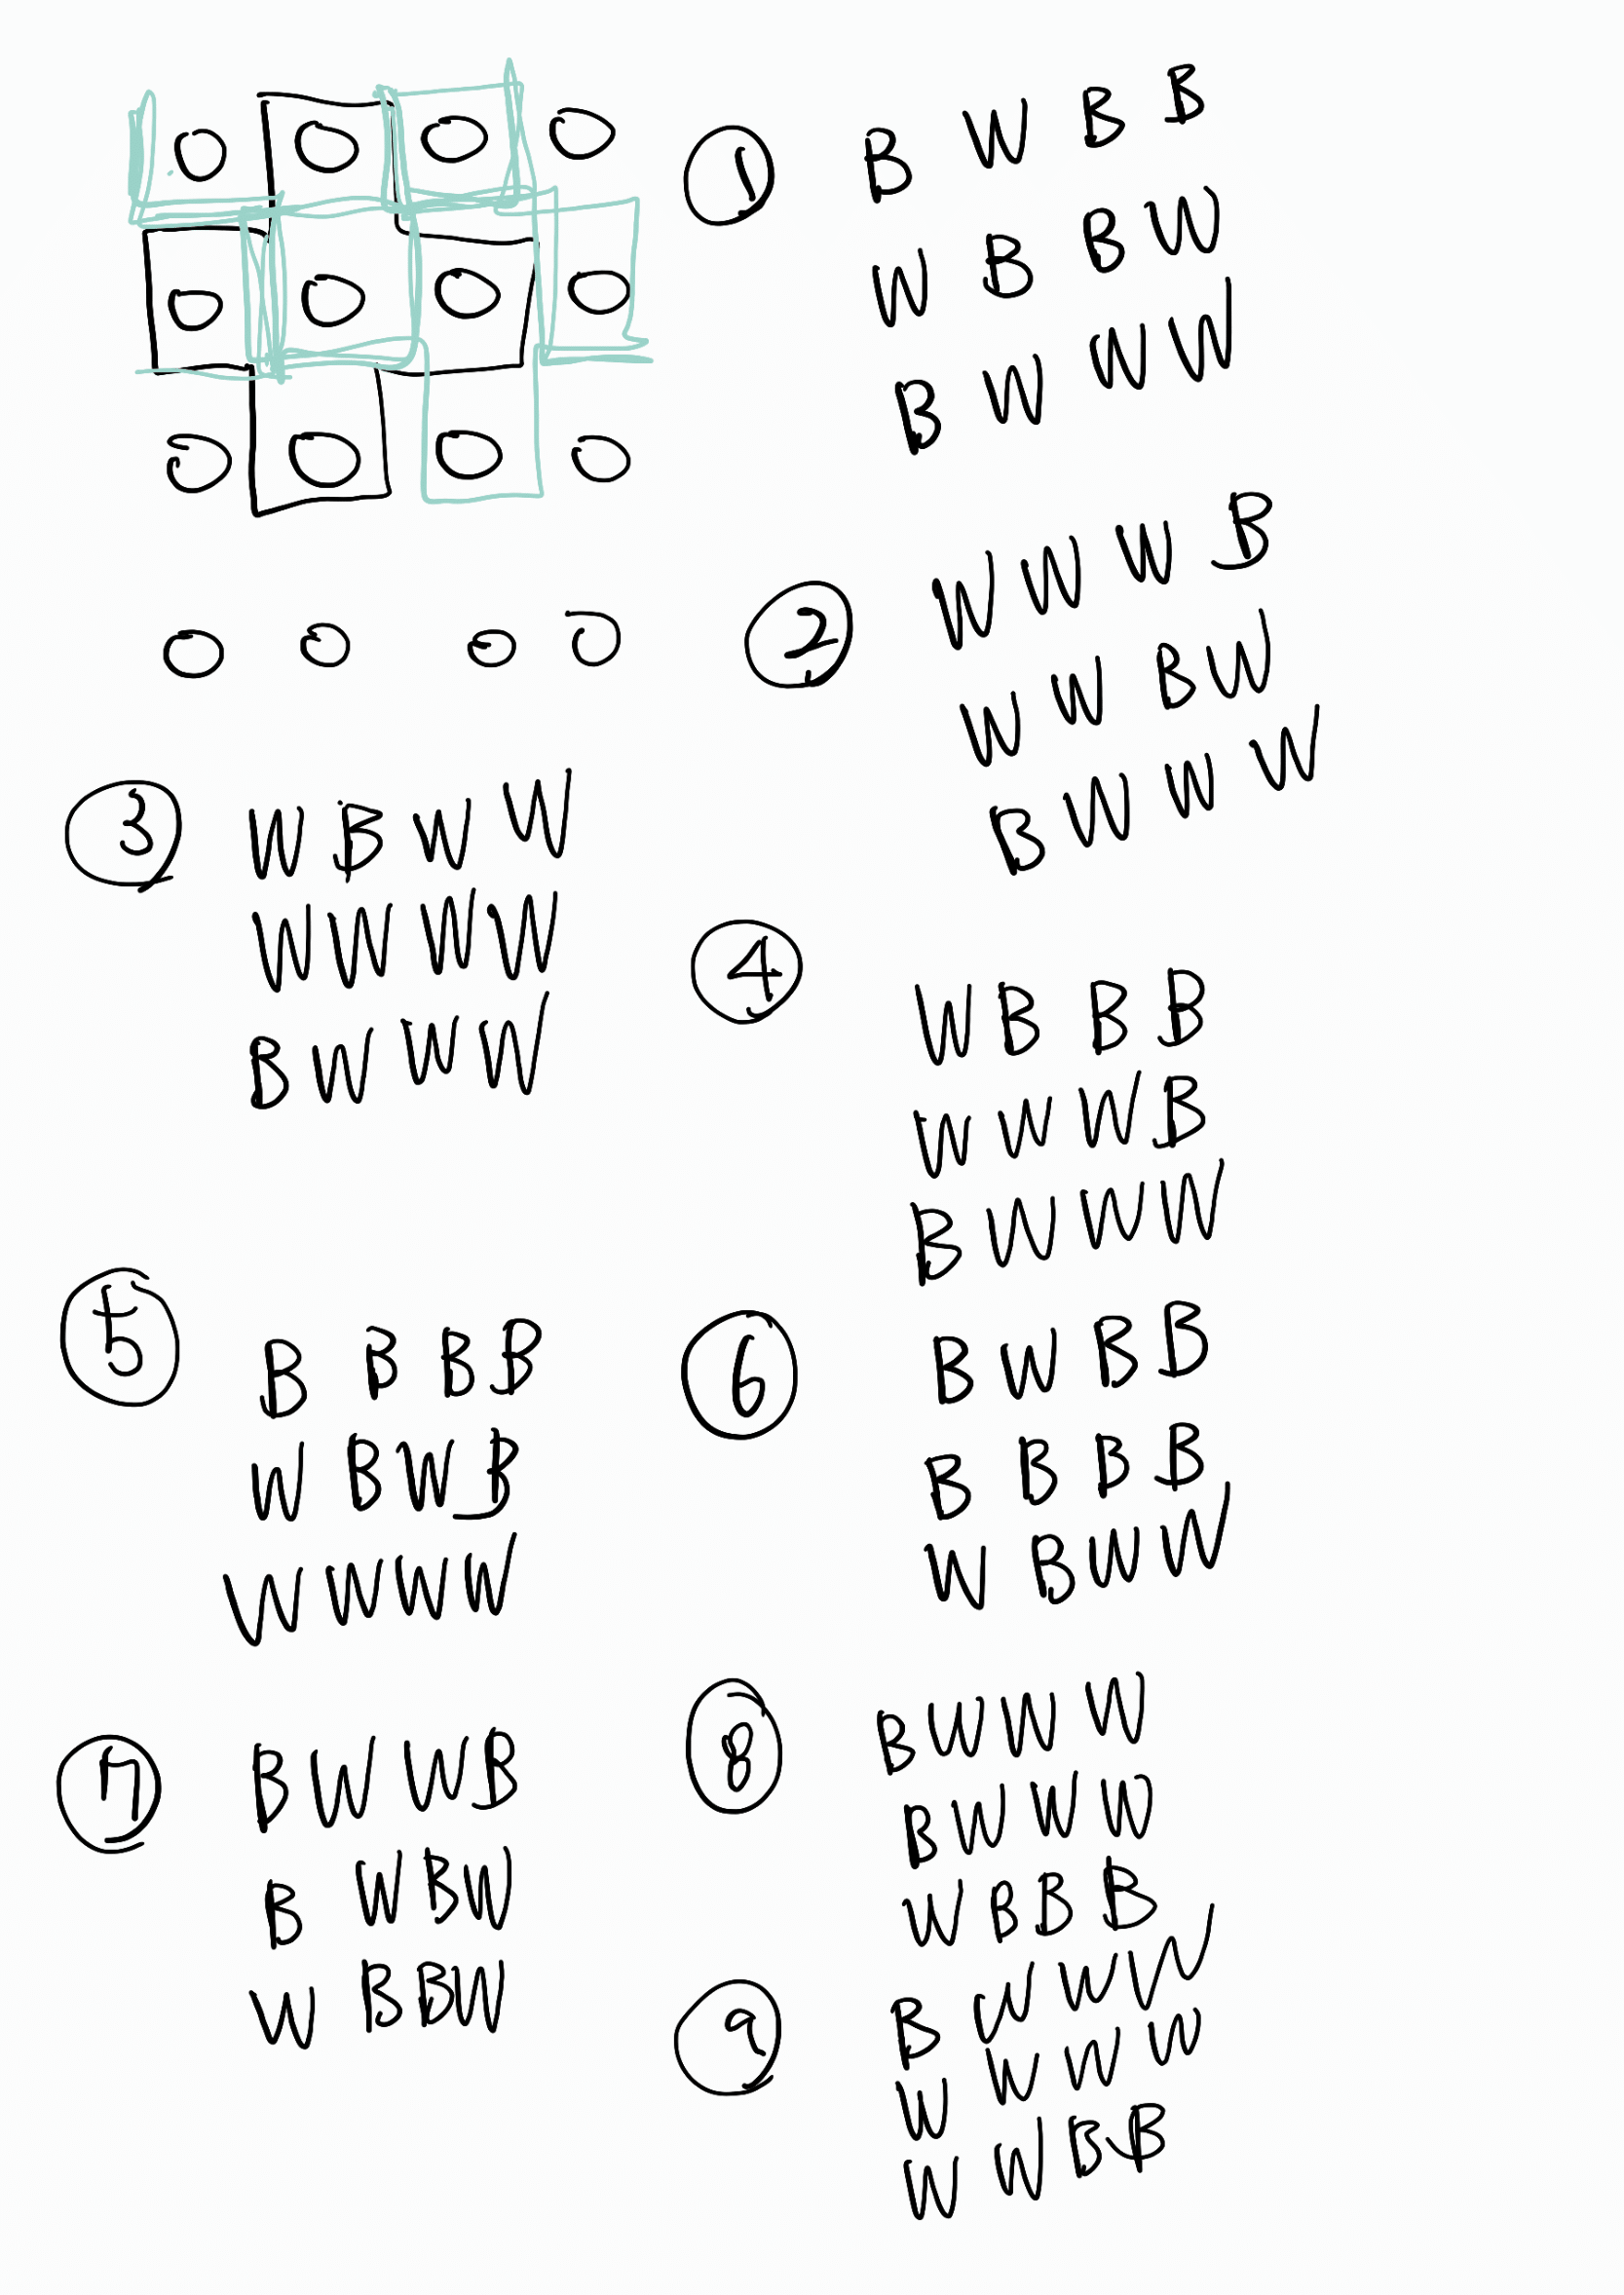 1
B W B B
W B B W
B W W W
2
W W W B
W W B W
B W W W
3
W B W W
W W W W
B W W W
4
W B B B
W W W B
B W W W
5
B B B B
W B W B
W W W W
6
B W B B
B B B B
W B W W
7
B W W B
B W B W
W B B W
8
B W W W
B W W W
W B B B
9
B W W W
W W W W
W W B B